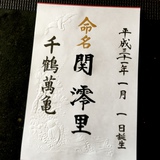 平成三十一年一月一日誕生
命名
関澪里
千鶴萬亀